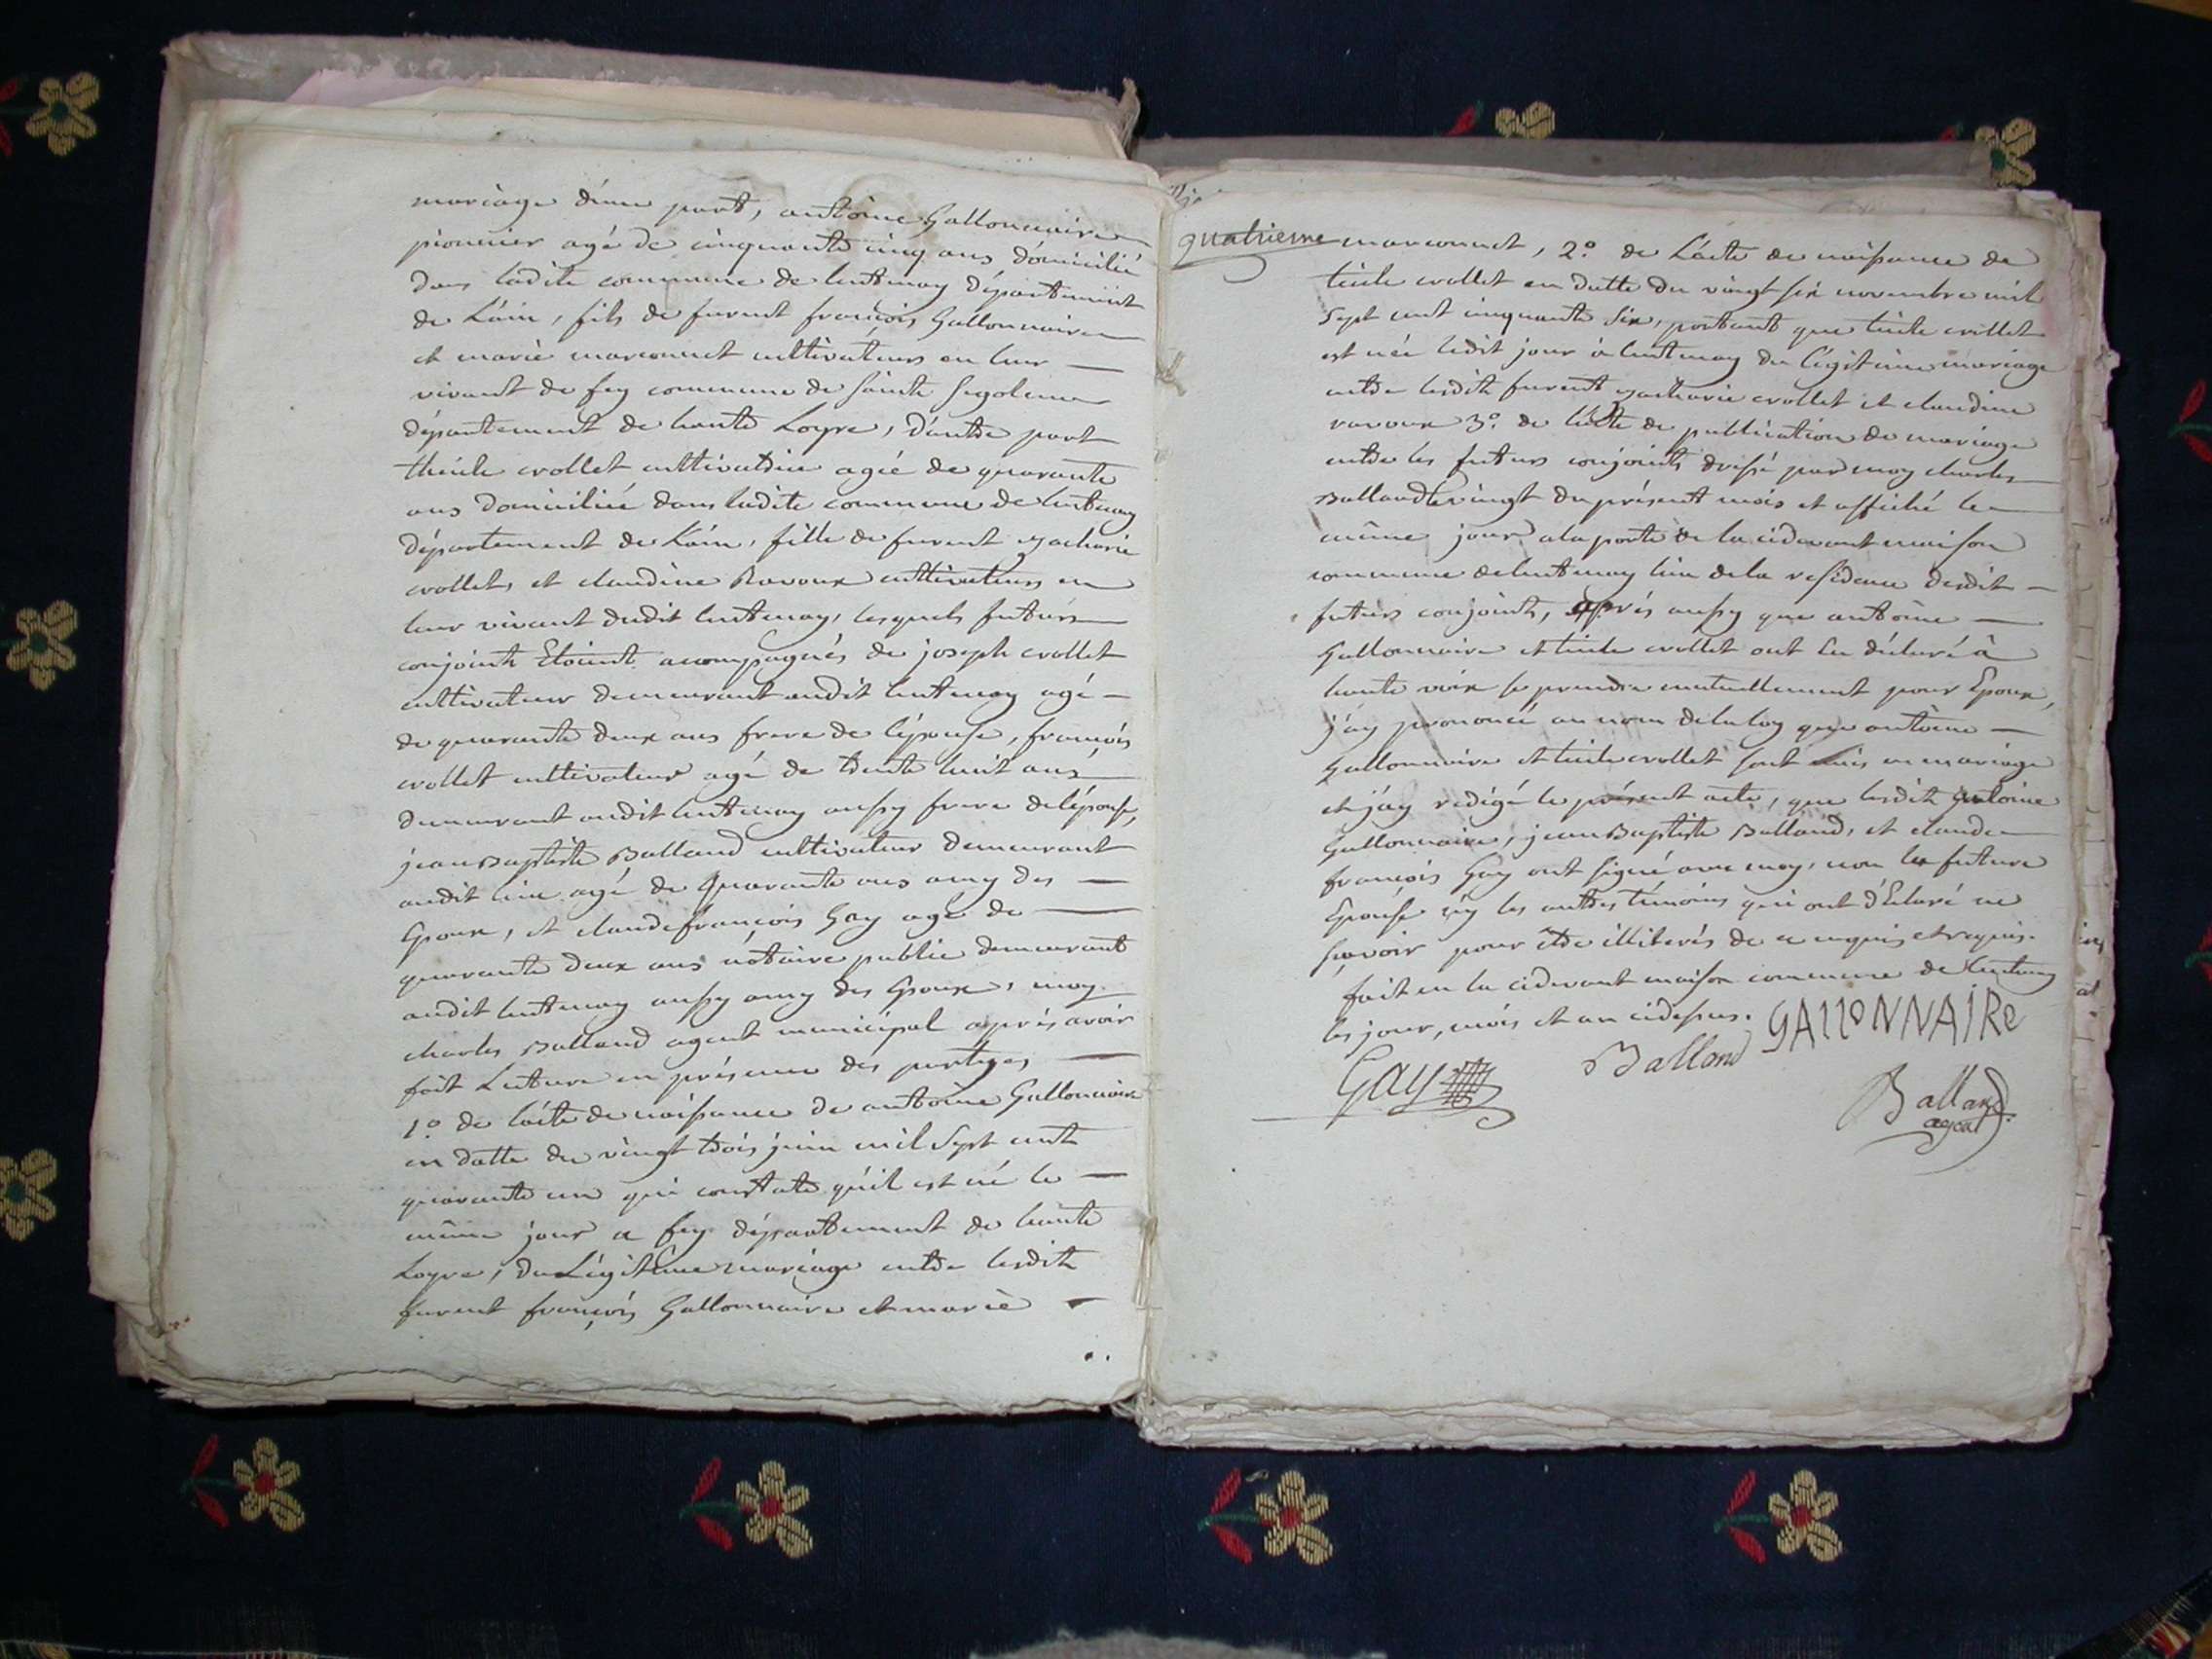 mariage d'une part, antoine Gallonnaire
pionnier agé de cinquante cinq ans domicilié
dans ladite commune de lentenay département
de L'ain, fils de furent françois Gallonnaire
et marie marconnet cultivateurs en leur
vivant de fey commune de sainte segolene
département de haute Loyre, d'autre part
thécle crollet cultivatrice agée de quarante
ans domiciliée dans ladite commune de lentenay
département de L'ain, fille de furent zacharie
crollet, et claudine Ravoux cultivateurs en
leur vivant dudit lentenay, lesquels futurs
conjoints Etoient acompagnés de joseph crollet
cultivateur demeurant audit lentenay agé
de quarante deux ans frere de l'épouse, françois
crollet cultivateur agé de trente huit ans
demeurant audit lentenay aussy frere de l'épouse,
jean Baptiste Balland cultivateur demeurant
audit lieu agé de quarante ans amy des
Epoux, et claude françois Gay agé de
quarante deux ans notaire public demeurant
audit lentenay aussy amy des Epoux, moy
charles Balland agent municipal après avoir
fait Lecture en présence des partyes
1.° de l'acte de naissance de antoine Gallonnaire
en datte du vingt trois juin mil sept cent
quarante un qui constate qu'il est né le
même jour a fey département de haute
Loyre, du Légitime mariage entre lesdits
furent françois Gallonnaire et marie
quatrieme
marconnet, 2.° de L'acte de naissance de
técle crollet en datte du vingt six novembre mil
sept cent cinquante six, portant que técle crollet
est née ledit jour à lentenay du légitime mariage
entre lesdits furent zacharie crollet et claudine
ravoux 3.° de l'acte de publication de mariage
entre les futurs conjoints dressé par moy charles
Balland le vingt du présent mois et affiché le
même jour a la porte de la cidevant maison
commune de lentenay lieu de la residence desdits
futurs conjoints, après aussy que antoine
Gallonnaire et técle crollet ont eu déclaré à
haute voix se prendre mutuellement pour Epoux,
j'ay prononcé au nom de la loy que antoine
Gallonnaire et técle crollet sont unis en mariage
et j'ay redigé le présent acte, que lesdits antoine
Gallonnaire, jean Baptiste Balland, et claude
françois Gay ont signé avec moy, non la future
Epouse ny les autres témoins qui ont d'Eclaré ne
savoir pour être illiterés de ce enquis et requis.
fait en la cidevant maison commune de lentenay
les jour, mois et an cidessus.
GALLONNAIRe
Gay
Balland
Balland
agent